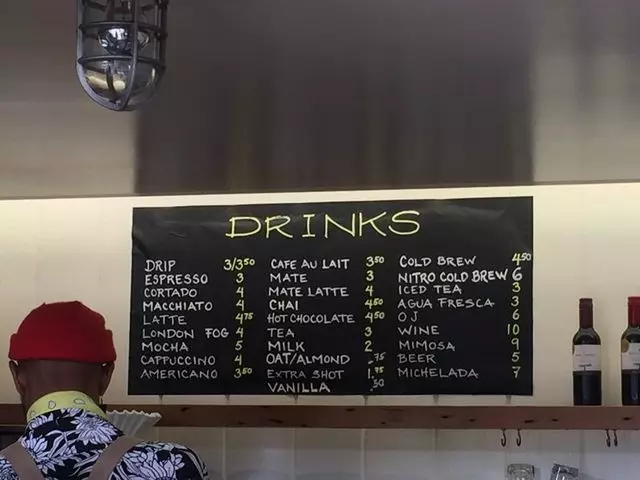 DRINKS
DRIP 3/3⁵⁰
ESPRESSO 3
CORTADO 4
MACCHIATO 4
LATTE 4⁷⁵
LONDON FOG 4
MOCHA 5
CAPPUCCINO 4
AMERICANO 3⁵⁰
CAFE AU LAIT 3⁵⁰
MATE 3
MATE LATTE 4
CHAI 4⁵⁰
HOT CHOCOLATE 4⁵⁰
TEA 3
MILK 2
OAT/ALMOND .75
EXTRA SHOT 1.⁷⁵
VANILLA .50
COLD BREW 4⁵⁰
NITRO COLD BREW 6
ICED TEA 3
AGUA FRESCA 3
OJ 6
WINE 10
MIMOSA 9
BEER 5
MICHELADA 7